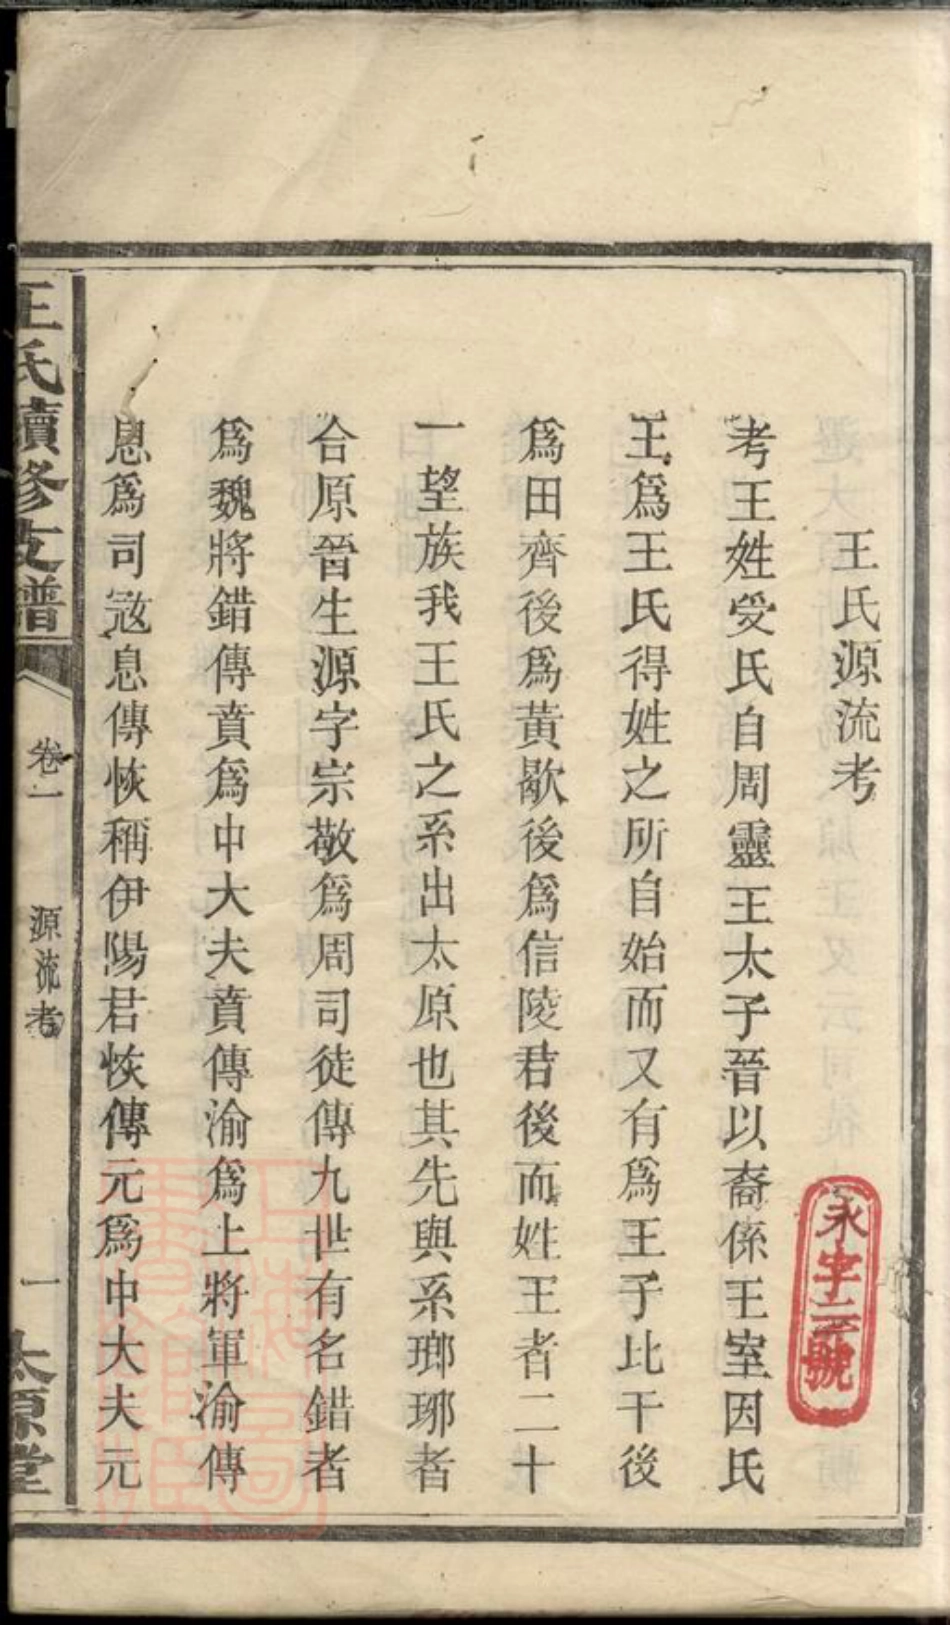 王氏源流考
考王姓受氏自周靈王太子晉以裔係王室因氏
王爲王氏得姓之所自始而又有爲王子比干後
爲田齊後爲黃歇後爲信陵君後而姓王者二十
一望族我王氏之系出太原也其先與系瑯琊者
合原晉生源字宗敬爲周司徒傳九世有名錯者
爲魏將錯傳賁爲中大夫賁傳渝爲上將軍渝傳
息爲司寇息傳恢稱伊陽君恢傳元爲中大夫元
王氏續修支譜
卷一
源流考
一
太原堂
永字三號
上海圖書館藏